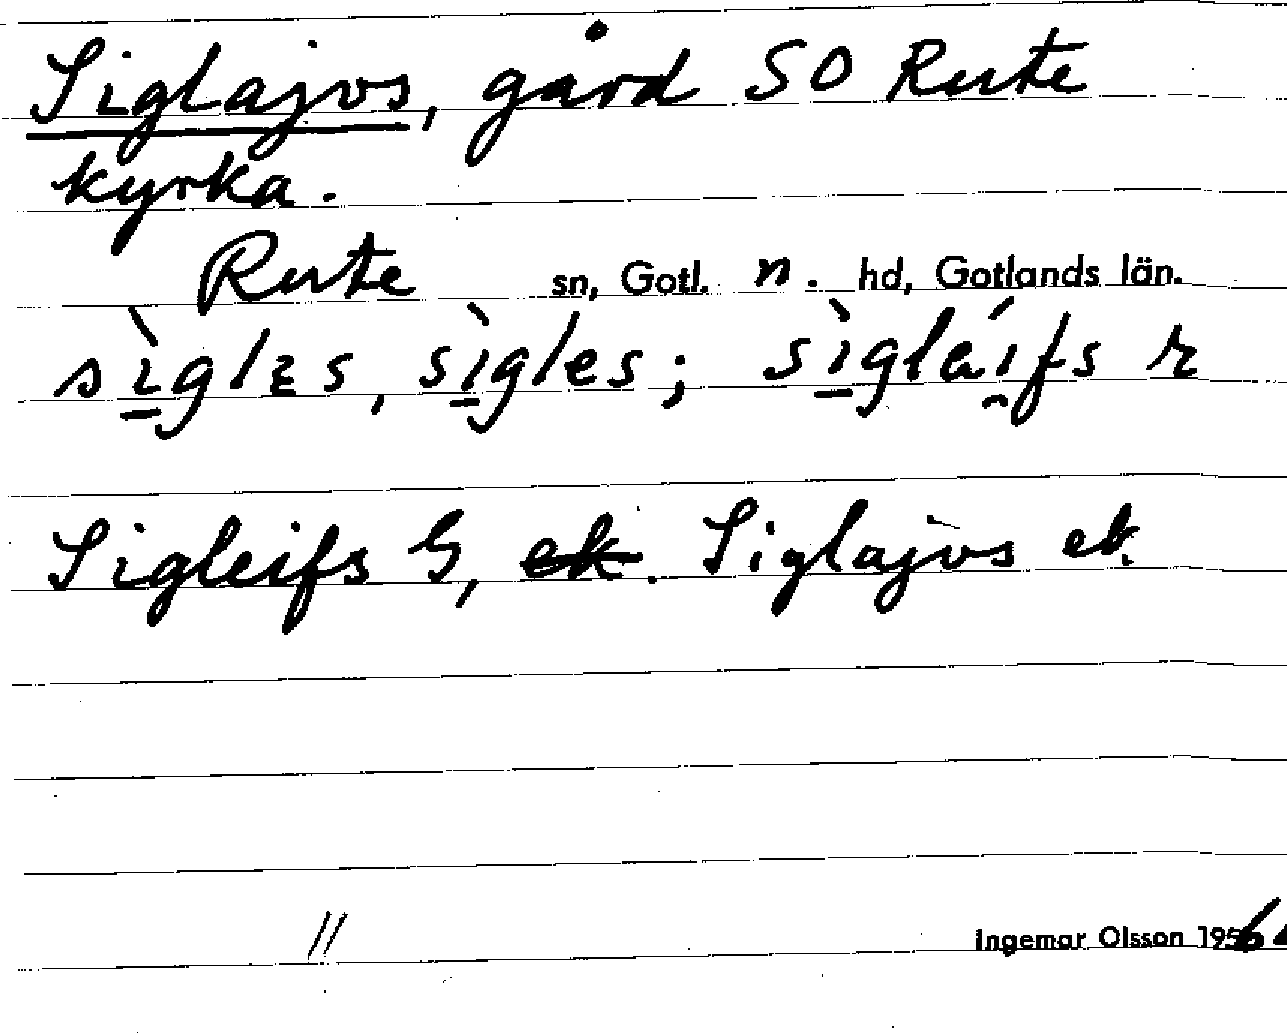 Siglajvs, gård SO Rute
kyrka.
Rute sn, Gotl. n. hd, Gotlands län.
sìglɛs, sìgles; sìgláifs r
Sigleifs G, ek. Siglajvs ek.
//
Ingemar Olsson 195